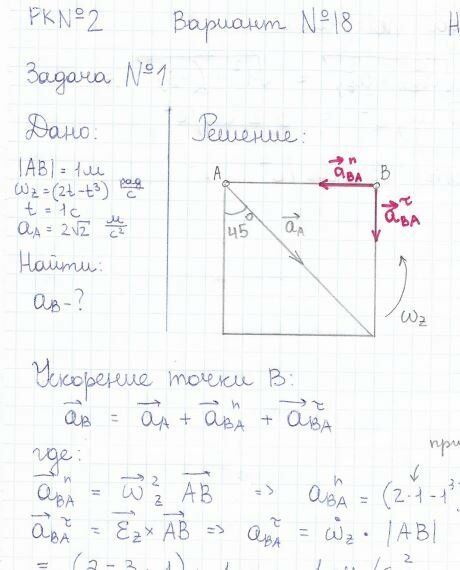 РК№2 Вариант №18 Н
Задача №1
Дано: Решение:
|AB| = 1м
ωz = (2t - t³) рад/с
t = 1с
aA = 2√2 м/с²
Найти:
aB - ?
A B
a⃗ⁿBA
a⃗ᵗBA
45°
a⃗A
ωz
Ускорение точки B:
a⃗B = a⃗A + a⃗ⁿBA + a⃗ᵗBA
где: при
a⃗ⁿBA = ω⃗²z AB⃗ => aⁿBA = (2·1 - 1³
a⃗ᵗBA = ε⃗z × AB⃗ => aᵗBA = ω̇z · |AB|